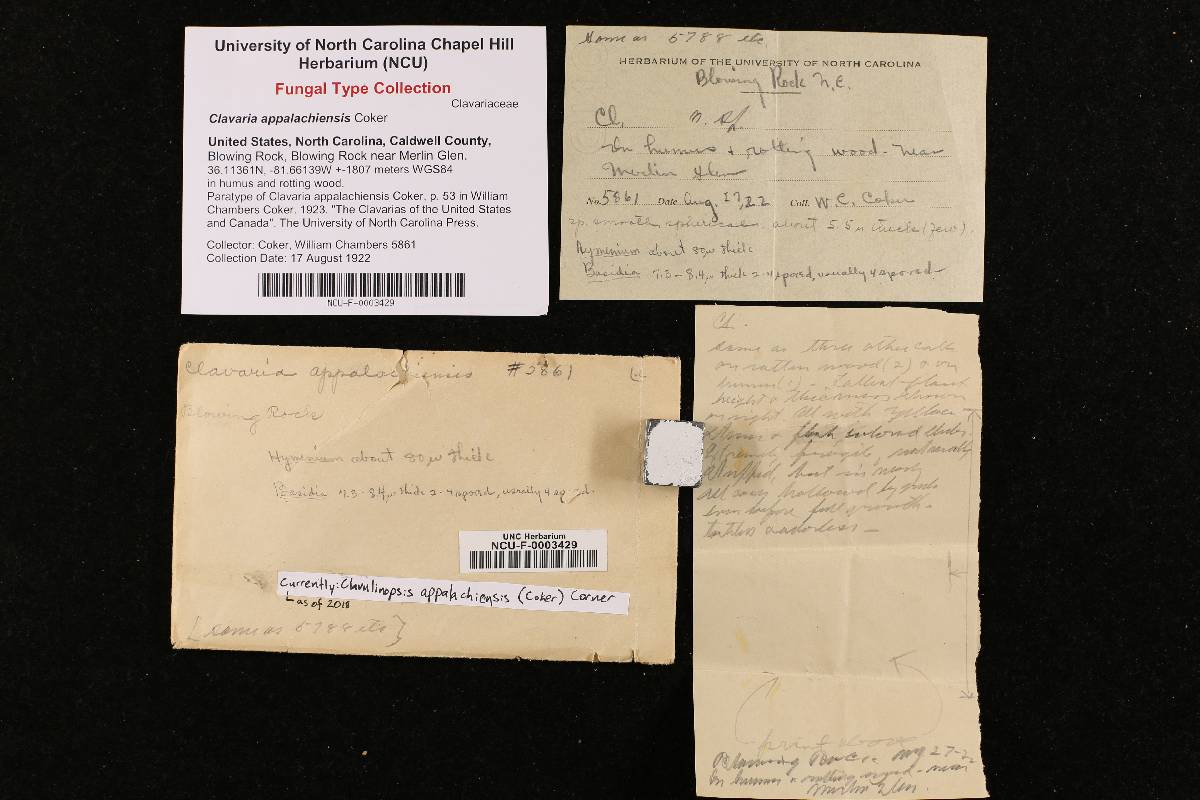 University of North Carolina Chapel Hill
Herbarium (NCU)
Fungal Type Collection
Clavariaceae
Clavaria appalachiensis Coker
United States, North Carolina, Caldwell County,
Blowing Rock, Blowing Rock near Merlin Glen.
36.11361N, -81.66139W +-1807 meters WGS84
in humus and rotting wood.
Paratype of Clavaria appalachiensis Coker, p. 53 in William
Chambers Coker. 1923. "The Clavarias of the United States
and Canada". The University of North Carolina Press.
Collector: Coker, William Chambers 5861
Collection Date: 17 August 1922
NCU-F-0003429
Same as 5788 etc.
HERBARIUM OF THE UNIVERSITY OF NORTH CAROLINA
Blowing Rock N.C.
Cl. n. sp.
In humus & rotting wood - near
Merlin Glen
No. 5861 Date Aug. 17, 22 Coll. W. C. Coker
sp. smooth spherical about 5.5 µ thick (few).
Hymenium about 80µ thick
Basidia 7.3-8.4µ thick 2-4 spored, usually 4 spored
Clavaria appalachiensis #5861
Blowing Rock
Hymenium about 80µ thick
Basidia 7.3-8.4µ thick 2-4 spored, usually 4 sp
UNC Herbarium
NCU-F-0003429
Currently: Clavulinopsis appalachiensis (Coker) Corner
as of 2018
[same as 5788 etc]
Cl.
Same as three other colls
on rotten wood (2) & on
humus (1) - Tallest plant
height & thickness shown
on right. All with yellow
stems & flesh colored clubs.
stuffed, but in nearly
all soon hollowed by grubs
even before full growth -
tasteless & odorless -
Blowing Rock. Aug 27-22
In humus & rotting wood - near
Merlin Glen.